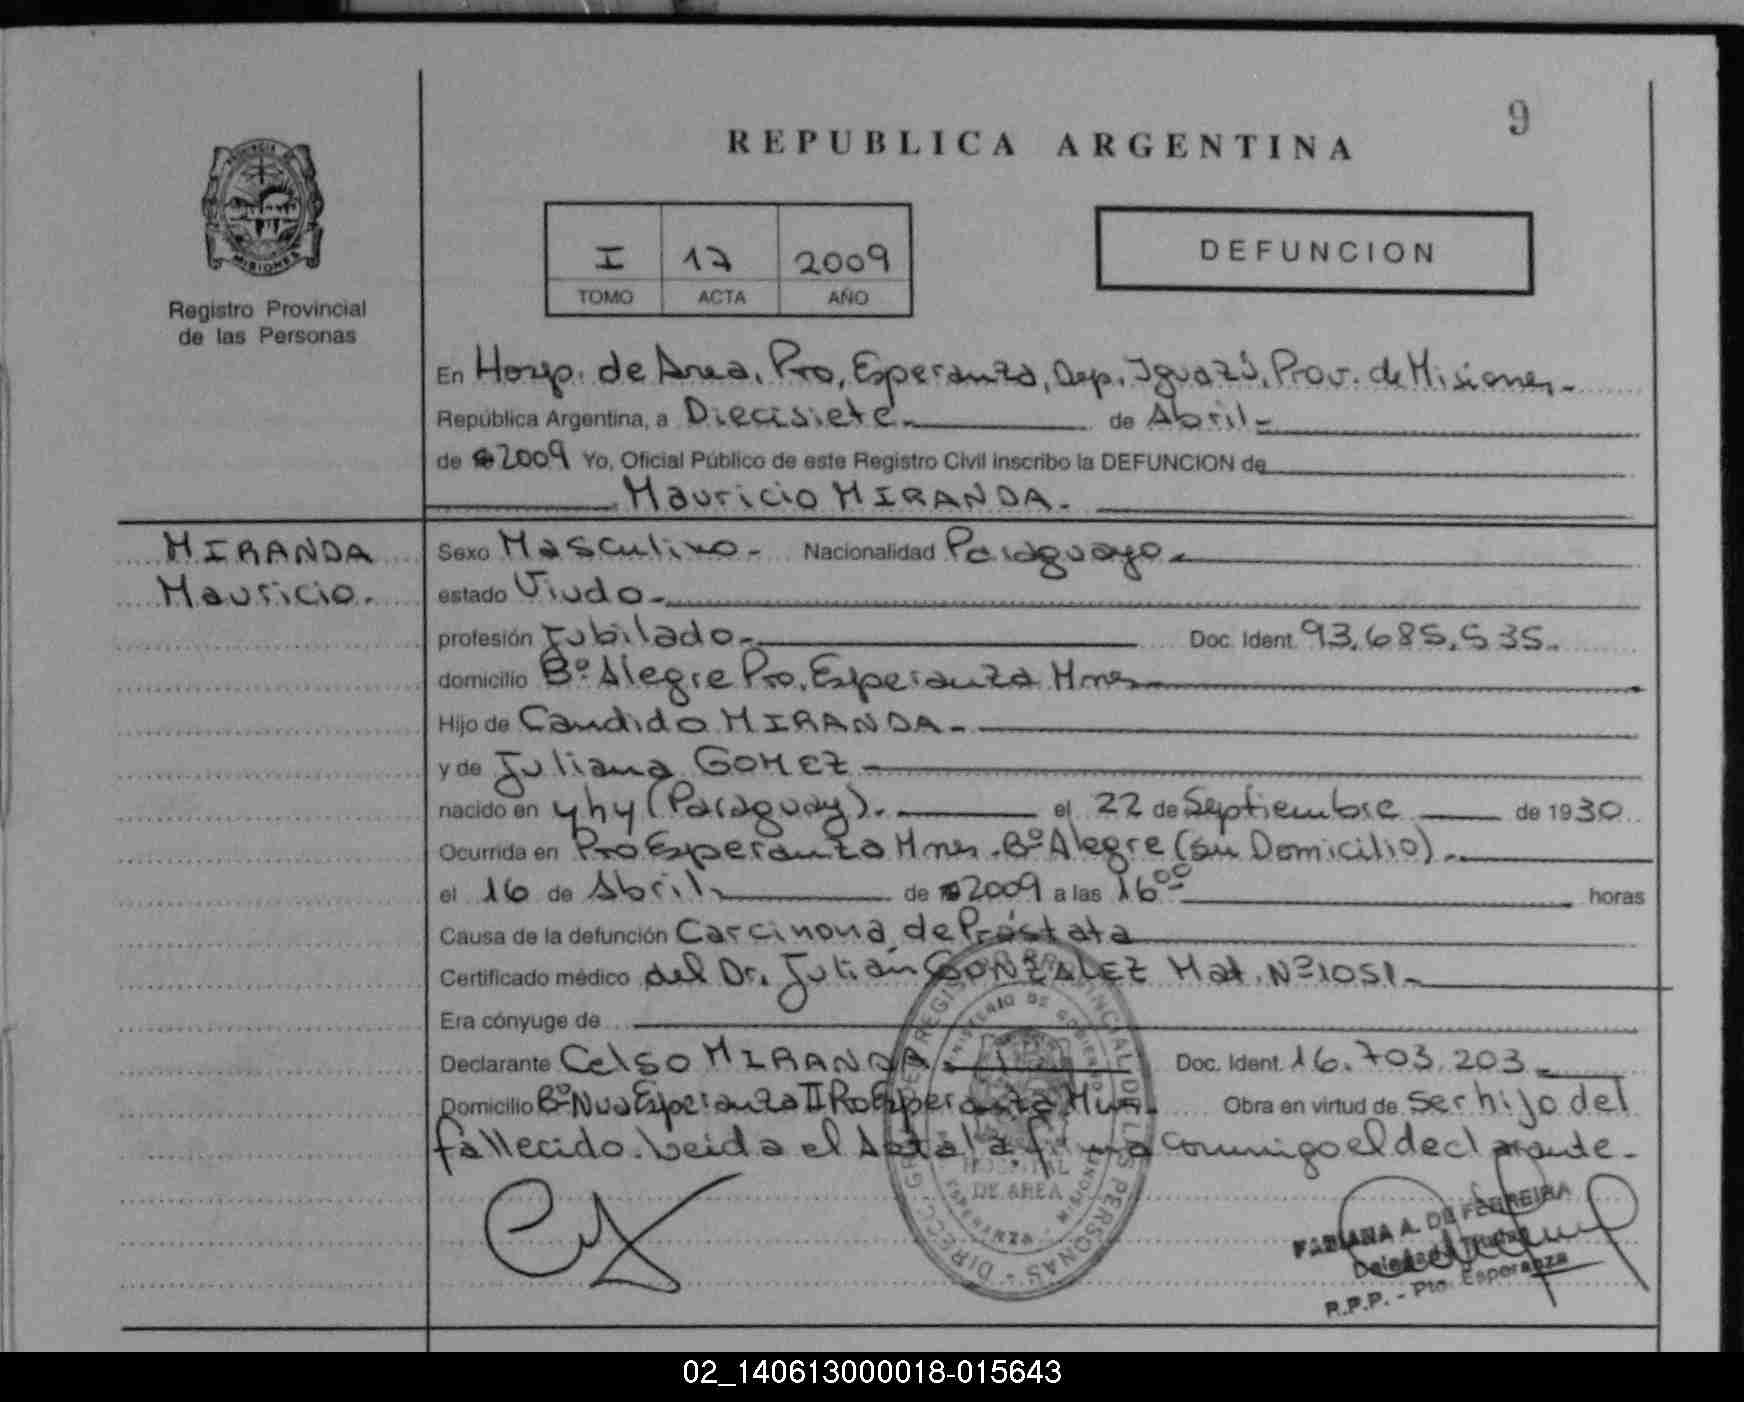 9
REPUBLICA ARGENTINA
I 17 2009
TOMO ACTA AÑO
DEFUNCION
PROVINCIA DE
MISIONES
Registro Provincial
de las Personas
En Hosp. de Area, Pto, Esperanza, Dep. Iguazú, Prov. de Misiones-
República Argentina, a Diecisiete- de Abril-
de 2009 Yo, Oficial Público de este Registro Civil inscribo la DEFUNCION de
Mauricio MIRANDA.
MIRANDA
Mauricio.
Sexo Masculino- Nacionalidad Paraguayo-
estado Viudo-
profesión Jubilado- Doc. Ident. 93.685.535.
domicilio Bº Alegre Pto. Esperanza Mnes
Hijo de Candido MIRANDA-
y de Juliana GOMEZ-
nacido en yhy (Paraguay). el 22 de Septiembre de 1930
Ocurrida en Pto Esperanza Mnes. Bº Alegre (su Domicilio).
el 16 de Abril de 2009 a las 16⁰⁰ horas
Causa de la defunción Carcinoma de Próstata
Certificado médico del Dr. Julián GONZALEZ Mat. Nº 1051-
Era cónyuge de
Declarante Celso MIRANDA Doc. Ident. 16.703.203-
Domicilio Bº Nva Esperanza II Pto Esperanza Mnes. Obra en virtud de ser hijo del
fallecido. Leida el Acta la firma conmigo el declarante-
HOSPITAL
DE AREA
FABIANA A. DE FERREIRA
Delegada Titular
R.P.P. - Pto. Esperanza
02_140613000018-015643